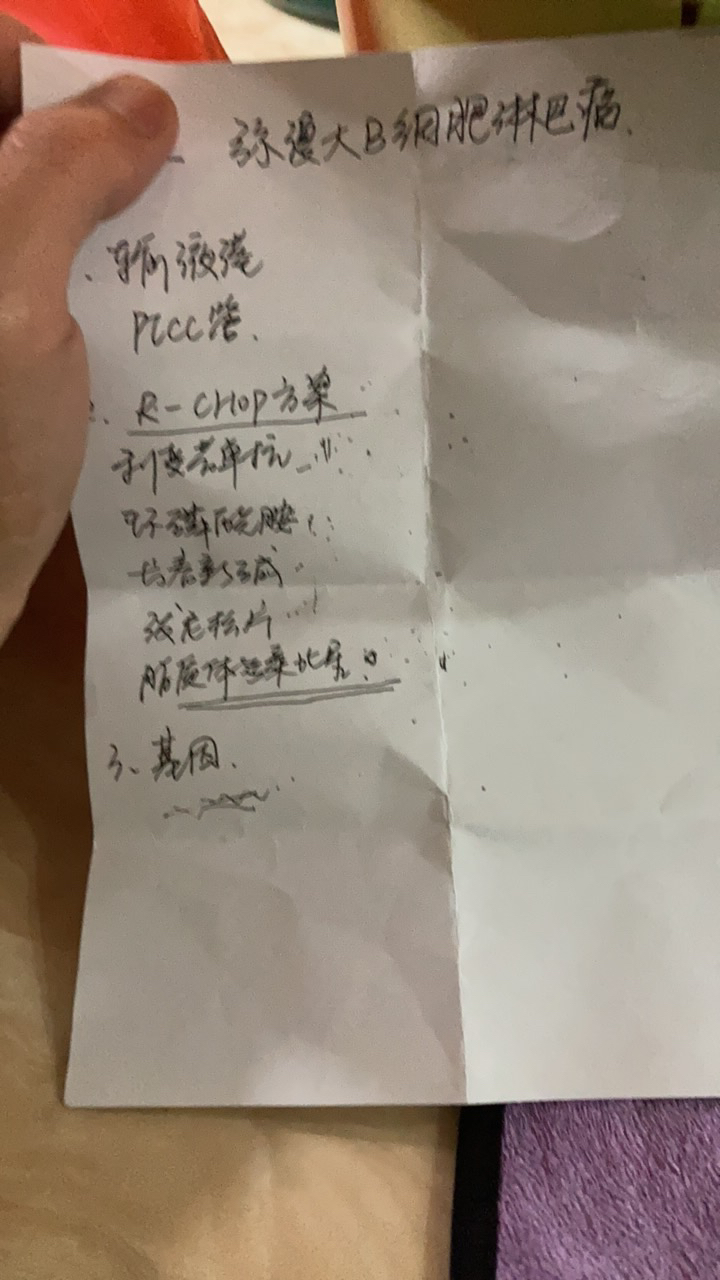 弥漫大B细胞淋巴瘤.
、输液港
PICC管.
2、R-CHOP方案
利妥昔单抗
环磷酰胺
长春新碱
泼尼松片
脂质体多柔比星
3、基因.